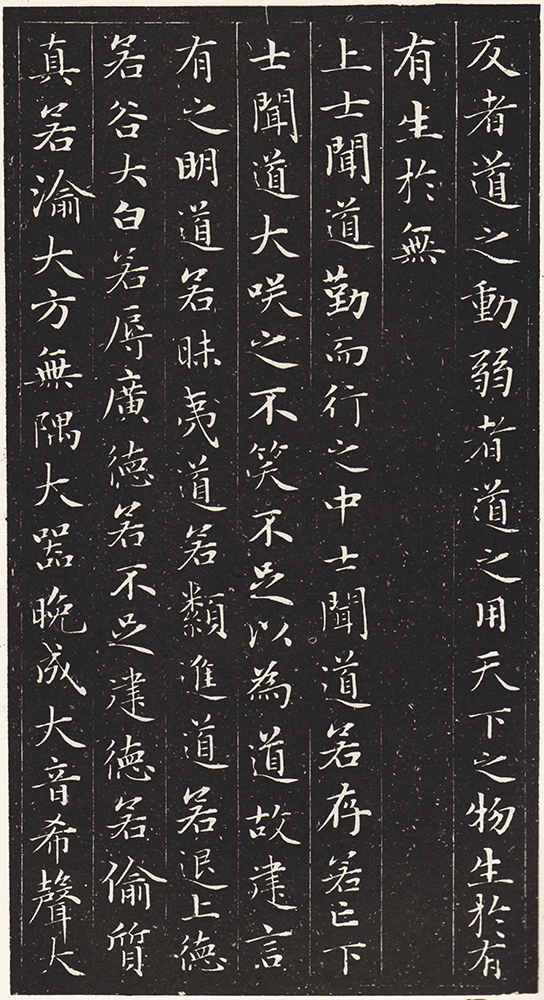 反者道之動弱者道之用天下之物生於有
有生於無
上士聞道勤而行之中士聞道若存若亡下
士聞道大咲之不笑不足以為道故建言
有之明道若昧夷道若類進道若退上德
若谷大白若辱廣德若不足建德若偷質
真若渝大方無隅大器晚成大音希聲大